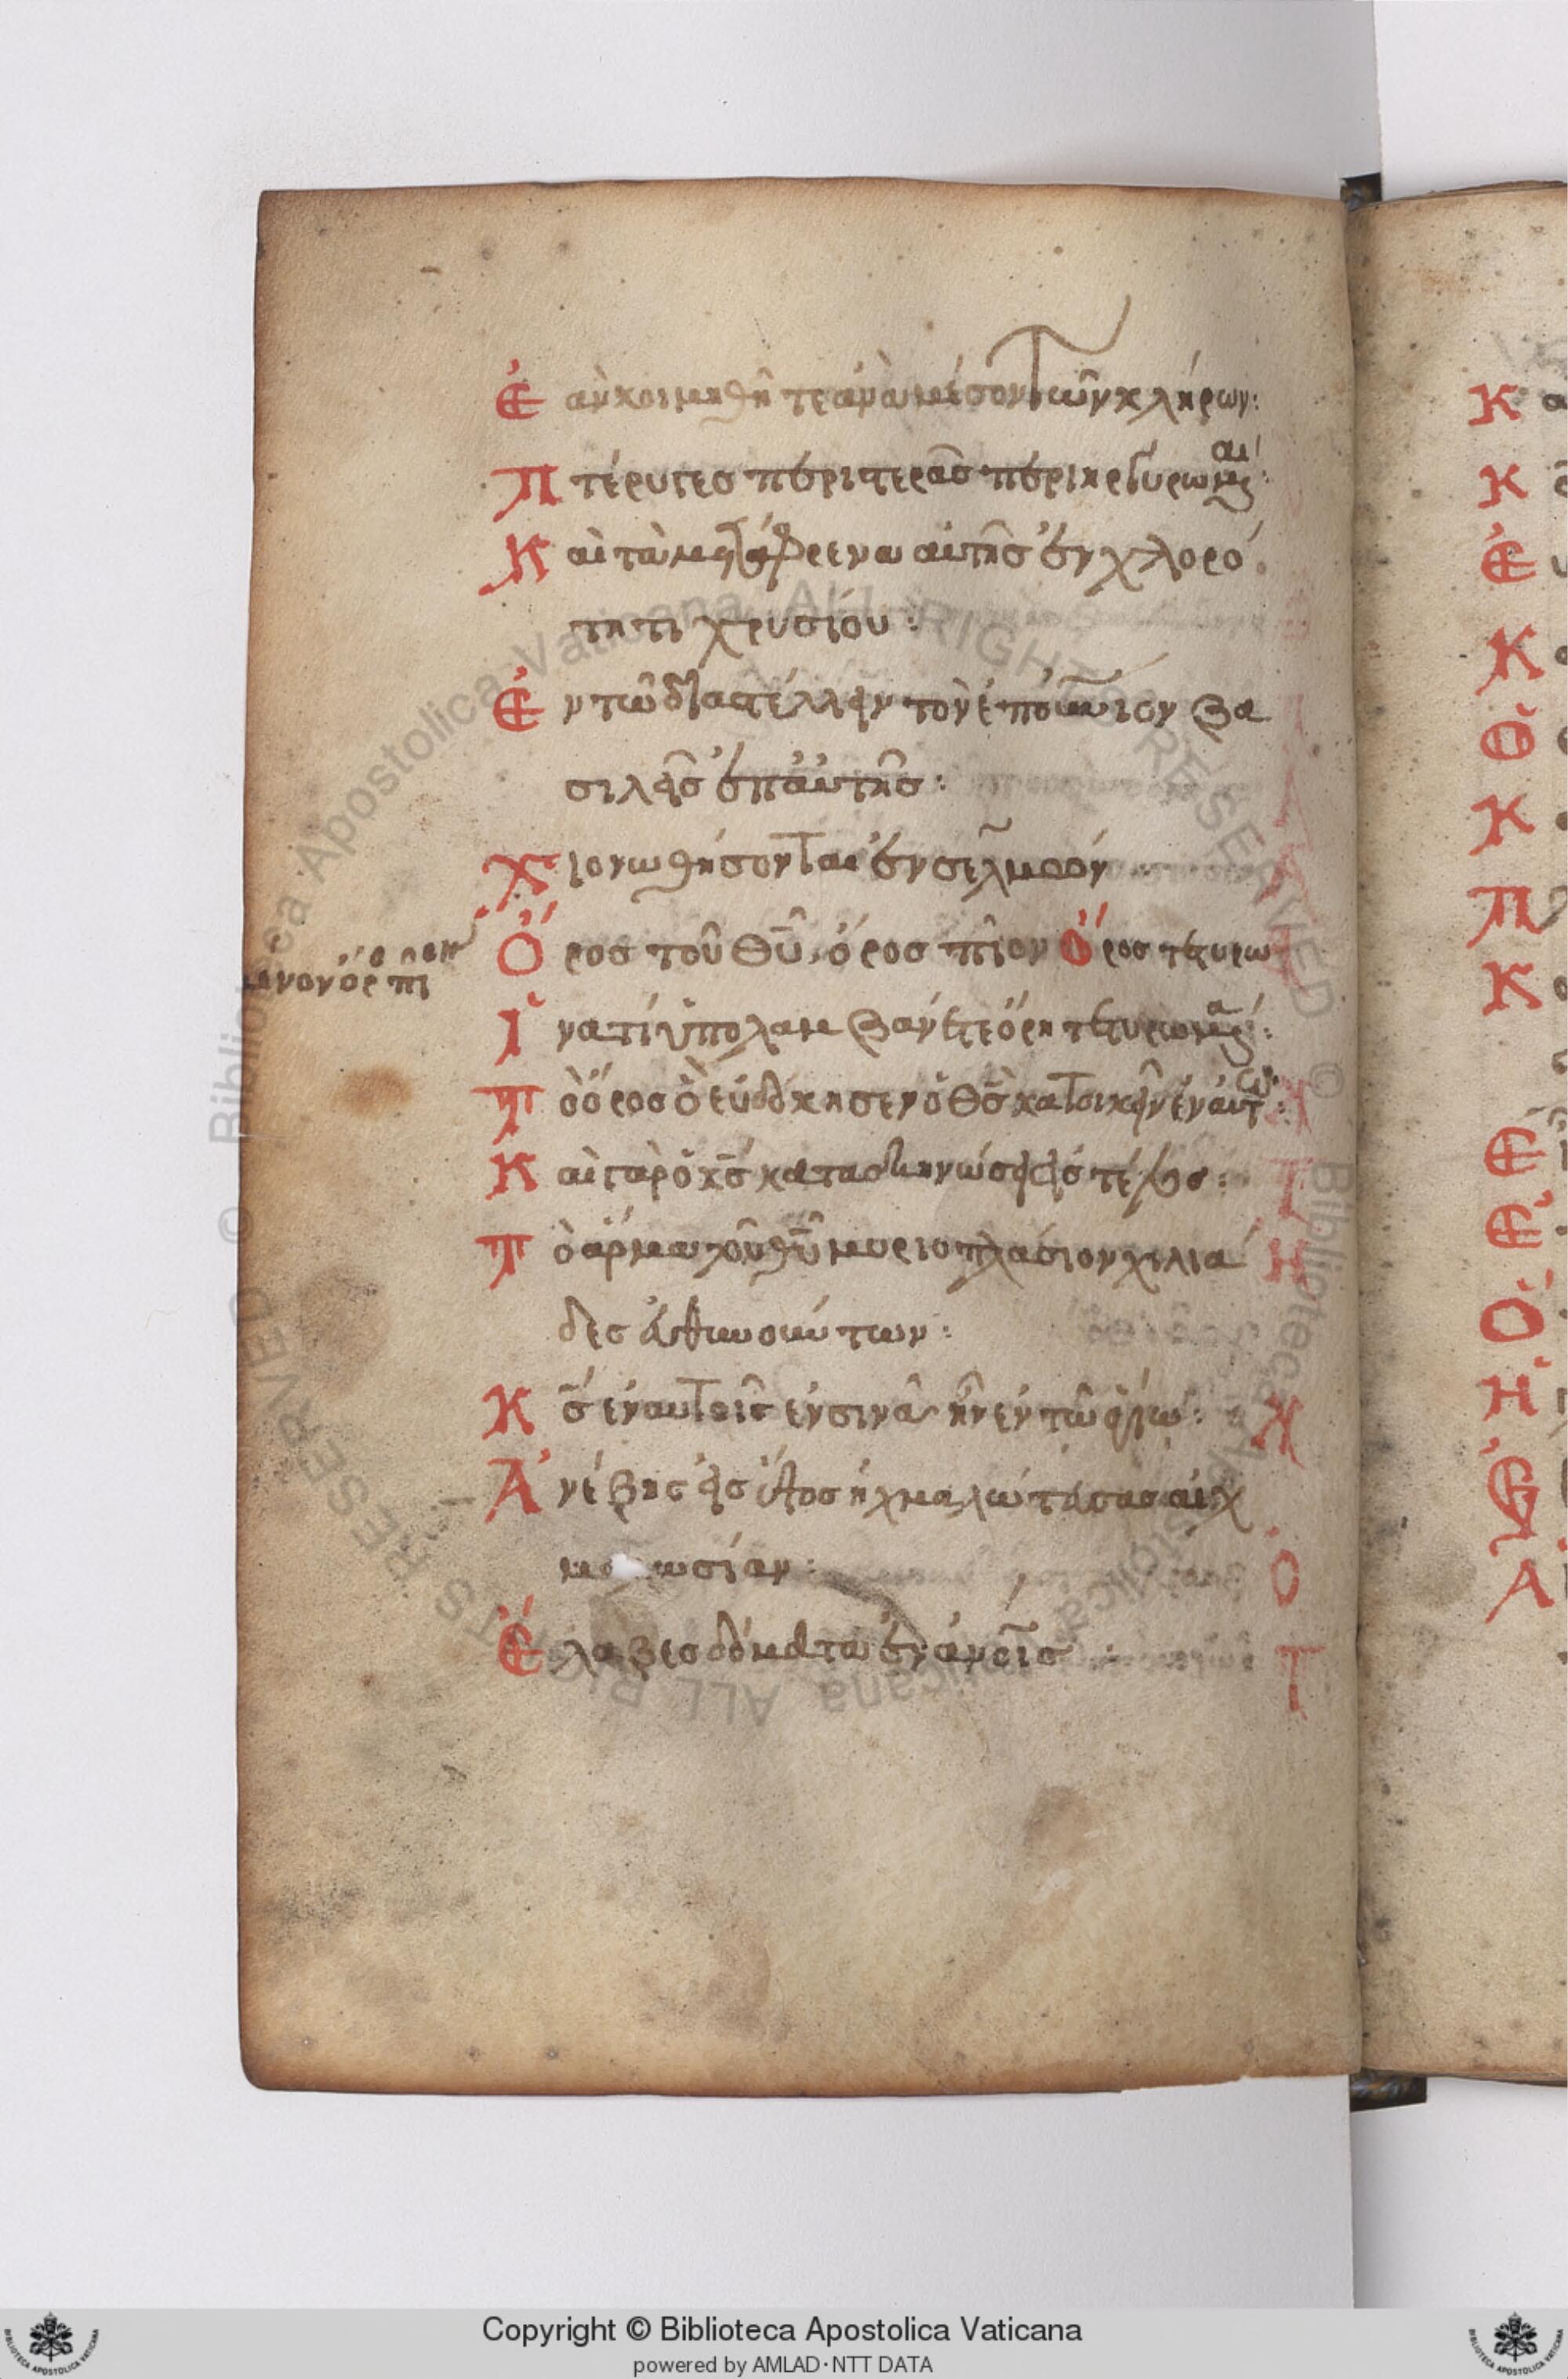 Ἐὰν κοιμηθῆτε ἀνὰ μέσον τῶν κλήρων:
Πτέρυγες περιστερᾶς περιηργυρωμέναι:
Καὶ τὰ μετάφρενα αὐτῆς ἐν χλορό
τητι χρυσίου:
Ἐν τῶ διαστέλλειν τὸν ἐπουνιον βα
σιλεῖς ἐπ αὐτῆς:
Χιονωθήσονται ἐν σελμὼν
Ὄρος τοῦ θῦ, ὄρος πῖον Ὄρος τετυρω
Ἵνα τί ὑπολαμβάνετε ὄρη τετυρωμένα:
Τὸ ὄρος ὃ εὐδόκησεν ὁ θς κατοικεῖν ἐν αὐτῶ:
Καὶ γὰρ ὁ κς κατασκηνώσει εἰς τέλος:
Τὸ ἅρμα τοῦ θῦ μυριοπλάσιον χιλιά
δες εὐθηνούντων:
Κς ἐν αὐτοῖς ἐν σινᾶ ἐν τῶ ἁγίω:
Ἀνέβης εἰς ὕψος ἠχμαλώτευσας αἰχ
μαλωσίαν:
Ἔλαβες δόματα ἐν ἀνοῖς
Copyright © Biblioteca Apostolica Vaticana
powered by AMLAD·NTT DATA